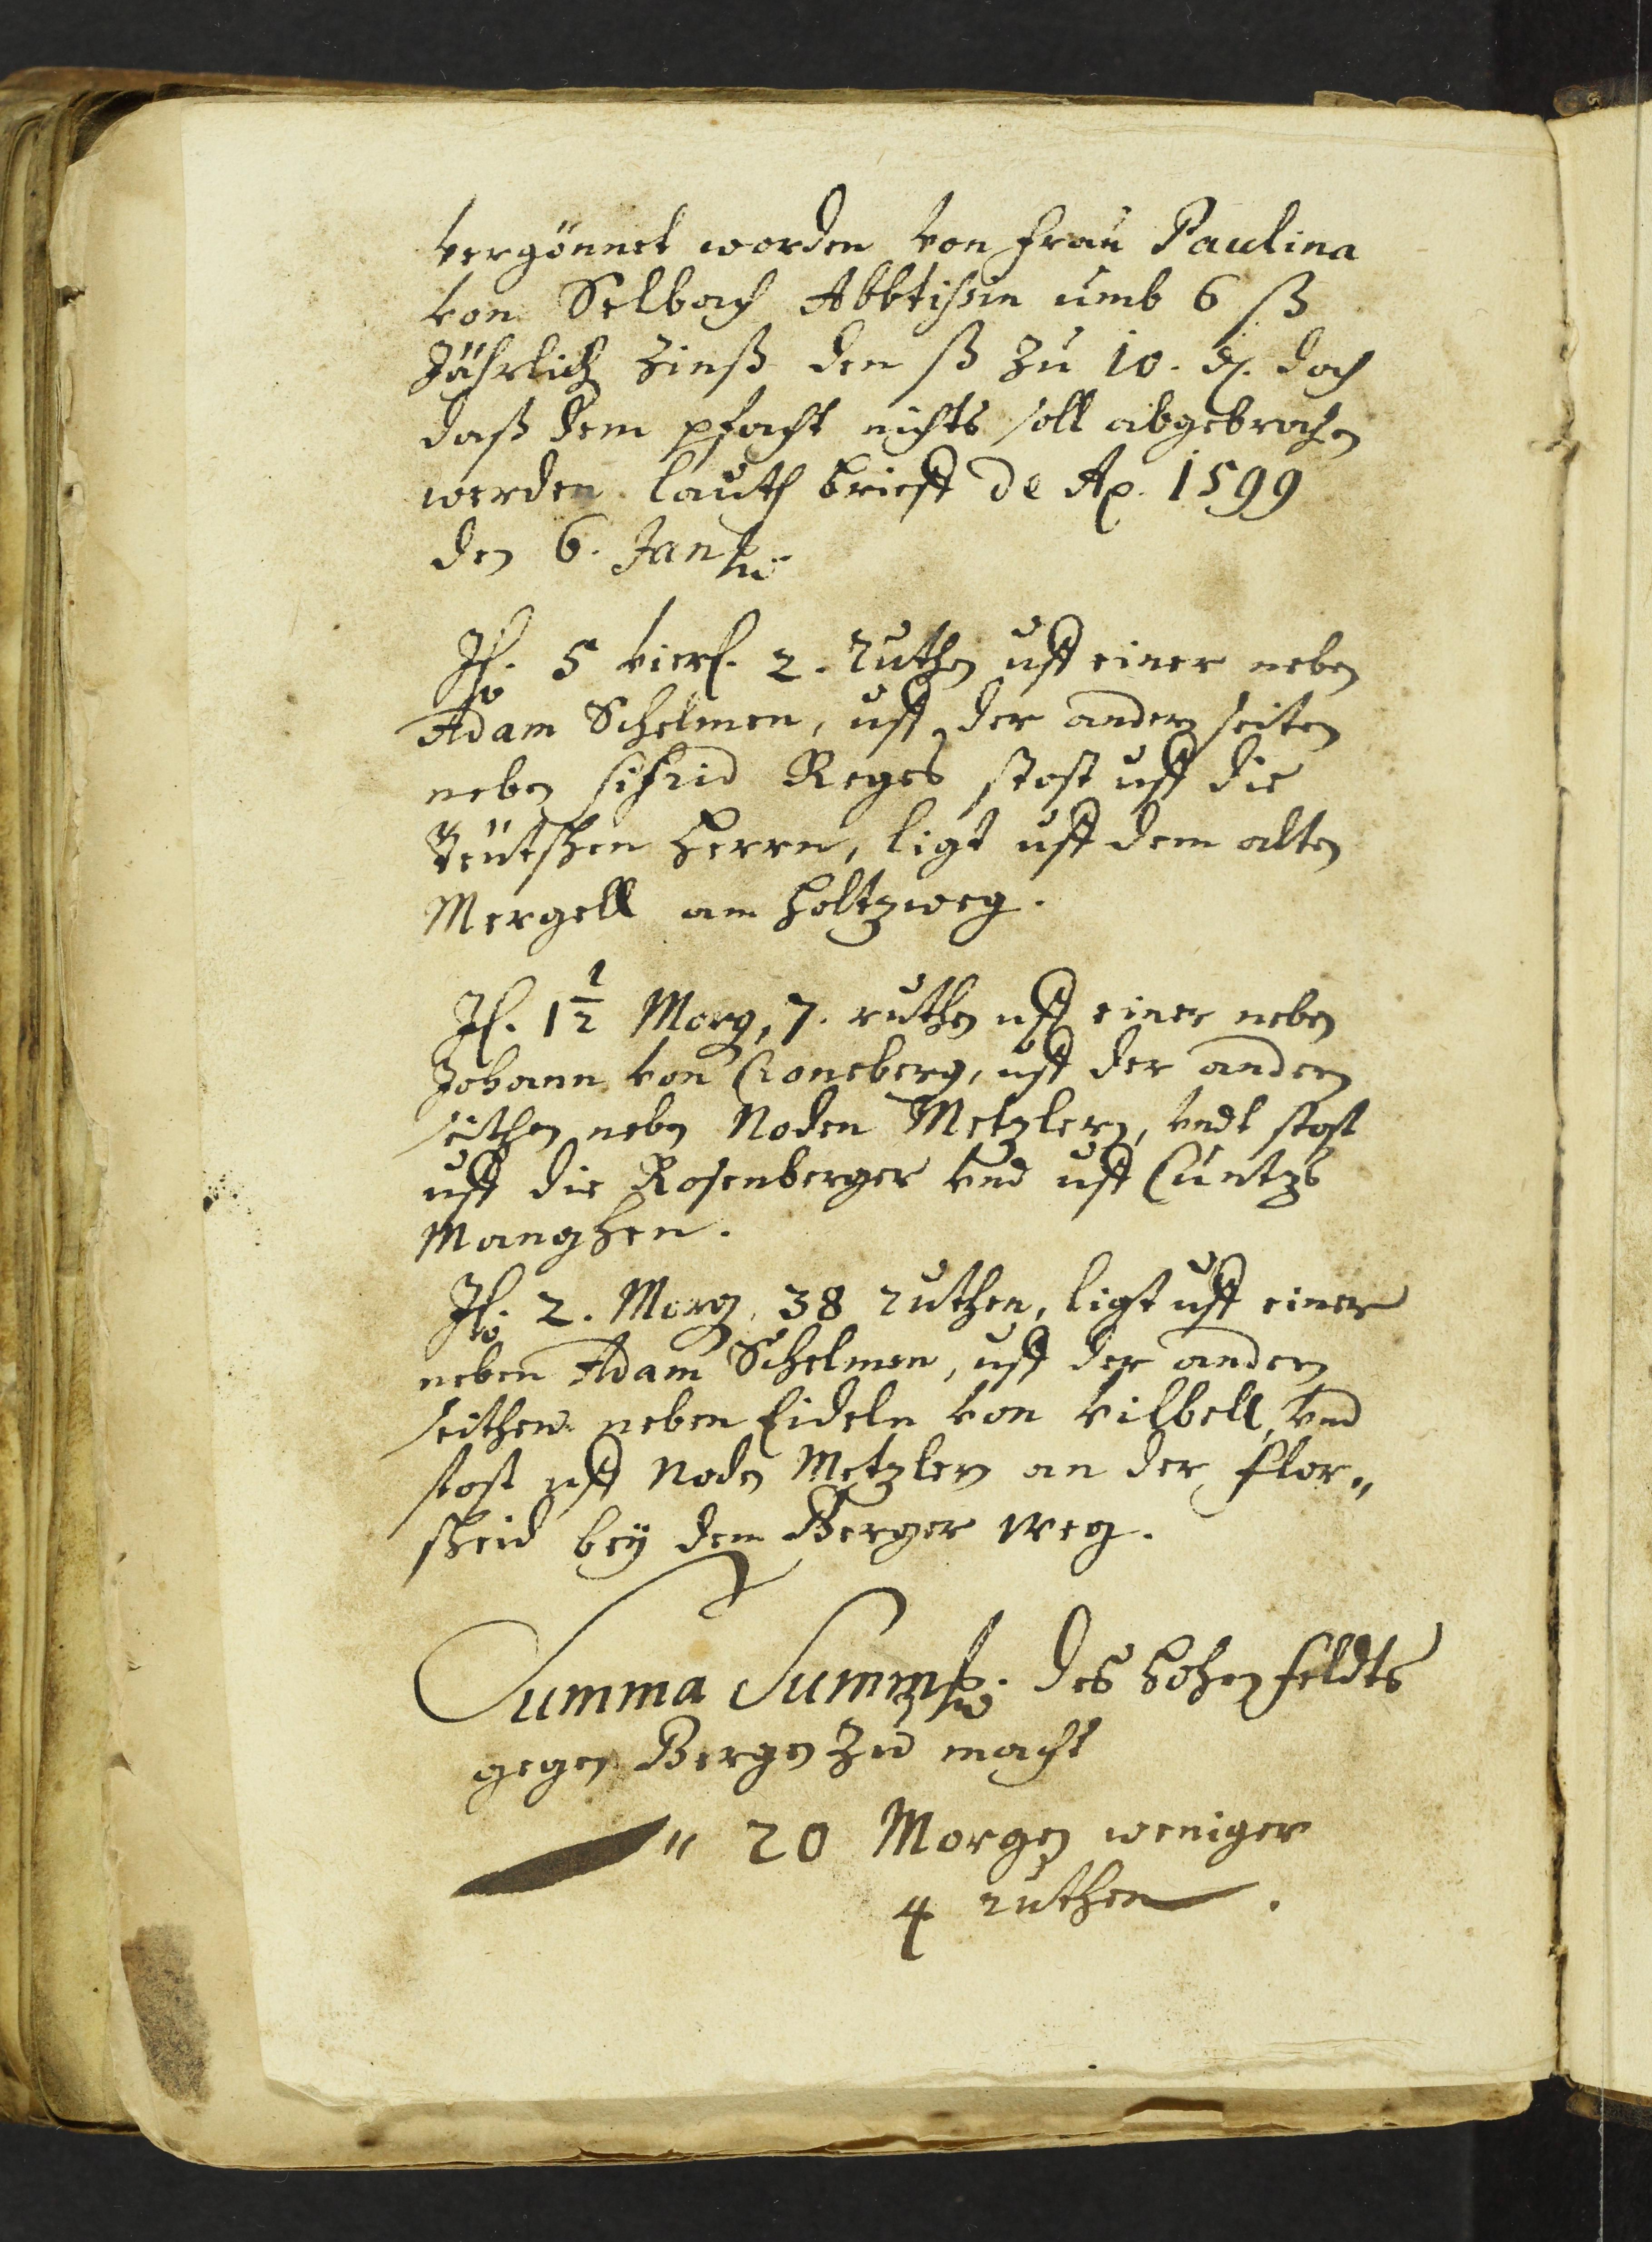 vergönnet worden von fraŭ Paulina
von Selbach Abbtißin ŭmb 6 ß
Jährlich Zinß den ß zŭ 10. d. doch
daß dem pfacht nichts soll abgebrochen
werden. laŭth brieff de Ao. 1599
den 6. Jan
Jt. 5 viert. 2. Rŭthen ŭff einer neben
Adam Schelmen, ŭff der andern seiten
neben sifrid Reges stost ŭff die
Teütschen herrn, ligt ŭff dem alten
Mergell am holtzweg.
Jt. 1 1/2 Morg, 7. rŭthen ŭff einer neben
Johann von Croneberg, ŭff der andern
seithen neben Noden Metzlern, vndt stost
ŭff die Rosenberger vnd ŭff Cŭntzs
Manghen.
Jt. 2. Morg, 38 rŭthen, ligt ŭff einer
neben Adam Schelmen, ŭff der andern
seithen neben Eideln von vilbell, vnd
stost ŭff Noden Metzlern an der flor„
scheid beÿ dem Berger weg.
Summa Summ. des hohen feldts
gegen Bergen zŭ macht
„ 20 Morgen weniger
4 rŭthen.